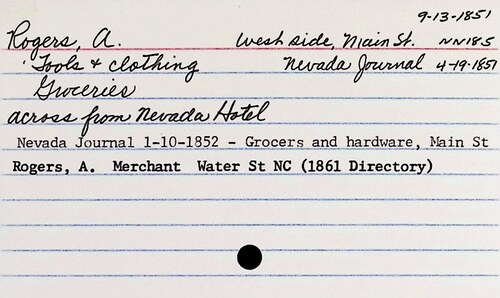 9-13-1851
Rogers, A. West side, Main St. NN18.5
Tools & clothing Nevada Journal 4-19-1851
Groceries
across from Nevada Hotel
Nevada Journal 1-10-1852 - Grocers and hardware, Main St
Rogers, A. Merchant Water St NC (1861 Directory)